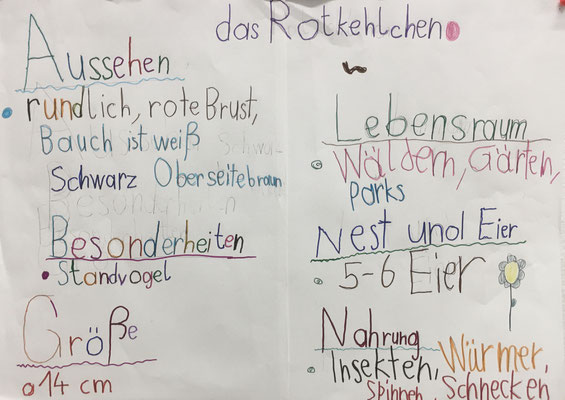 das Rotkehlchen
Aussehen
rundlich, rote Brust,
Bauch ist weiß
Schwarz Oberseitebraun
Besonderheiten
Standvogel
Größe
14 cm
Lebensraum
Wäldern, Gärten,
Parks
Nest und Eier
5-6 Eier
Nahrung
Insekten, Würmer,
Spinnen, Schnecken